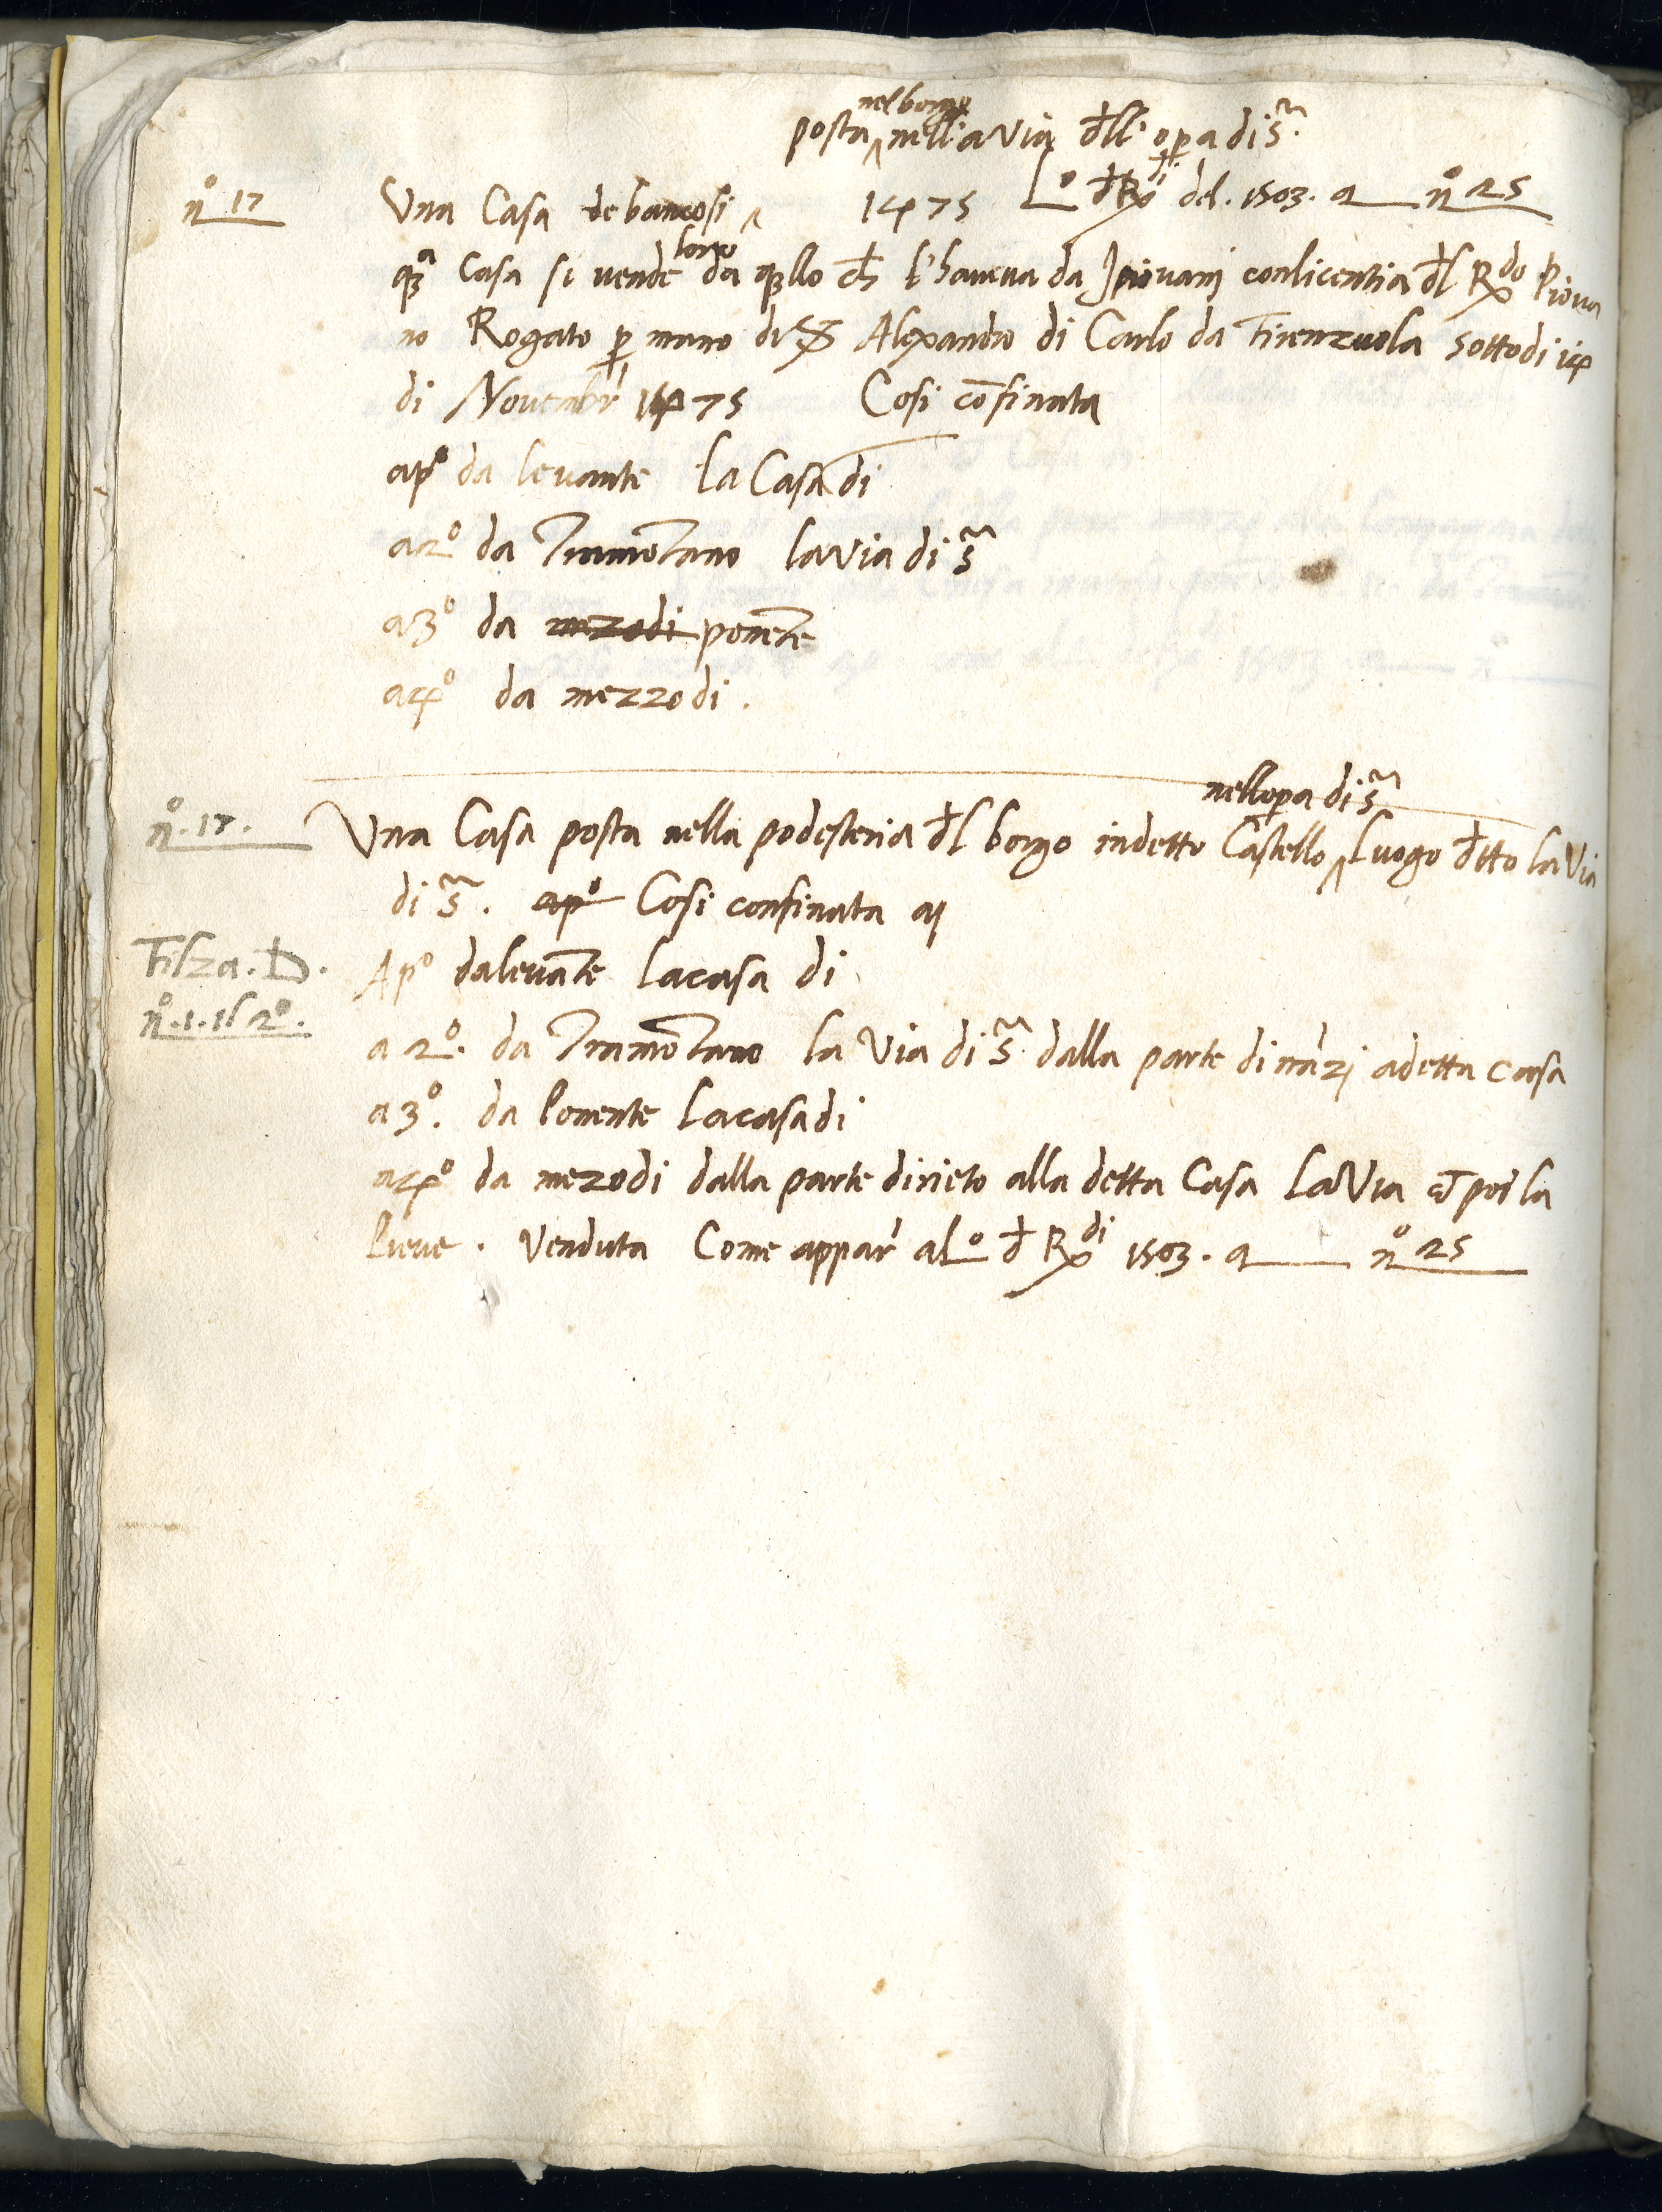 nel borgo
posta ^ nella via dll' opa di S.ª
nº 17 Una Casa de bancosi ^ 1475 Lº d Rdi del. 1503. a nº 25
loro
qª Casa si vende da qllo ch l'haveva da piovani con licentia dl Rdo Piova
no Rogato p mano di S Alexandro di Carlo da Firenzuola sotto di 14
di Novembr 1475 Cosi cōfinata
a pº da levante la Casa di
a 2º da Tramōtano la via di S.ª
a 3º da mezodi ponēte
a 4º da mezzodi.
nell opa di S.ª
nº. 17. Una Casa posta nella podesteria dl borgo in detto Castello ^ Luogo dtto la Via
di S.ª. a pº Cosi confinata a
Filza. D. A pº da levāte la casa di
nº. 1. il 2º. a 2º. da Tramōtano la Via di S.ª dalla parte dināzi a detta casa
a 3º. da Ponente la casa di
a 4º da mezodi dalla parte dirieto alla detta Casa La Via et poi la
Pieve. Venduta Come appar' a Lº d Rdi 1503. a nº 25